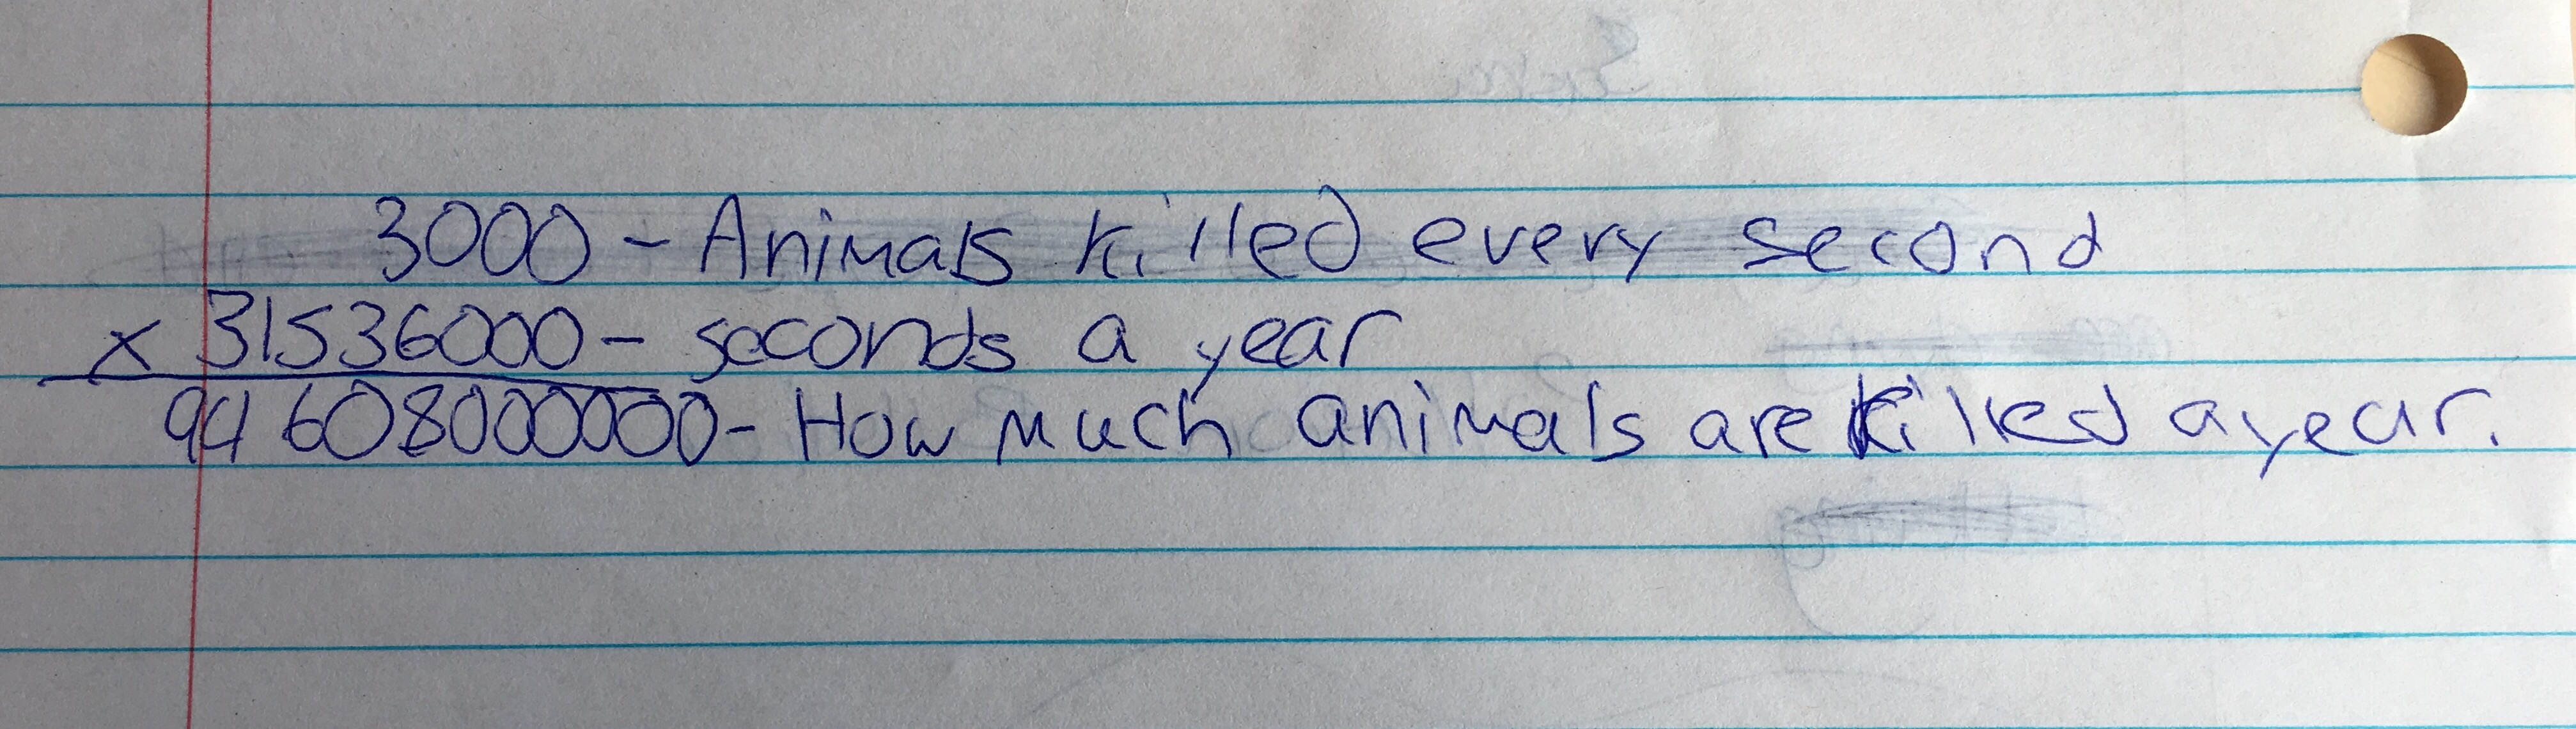 3000 - Animals killed every second
x 31536000 - seconds a year
94608000000 - How much animals are killed a year.